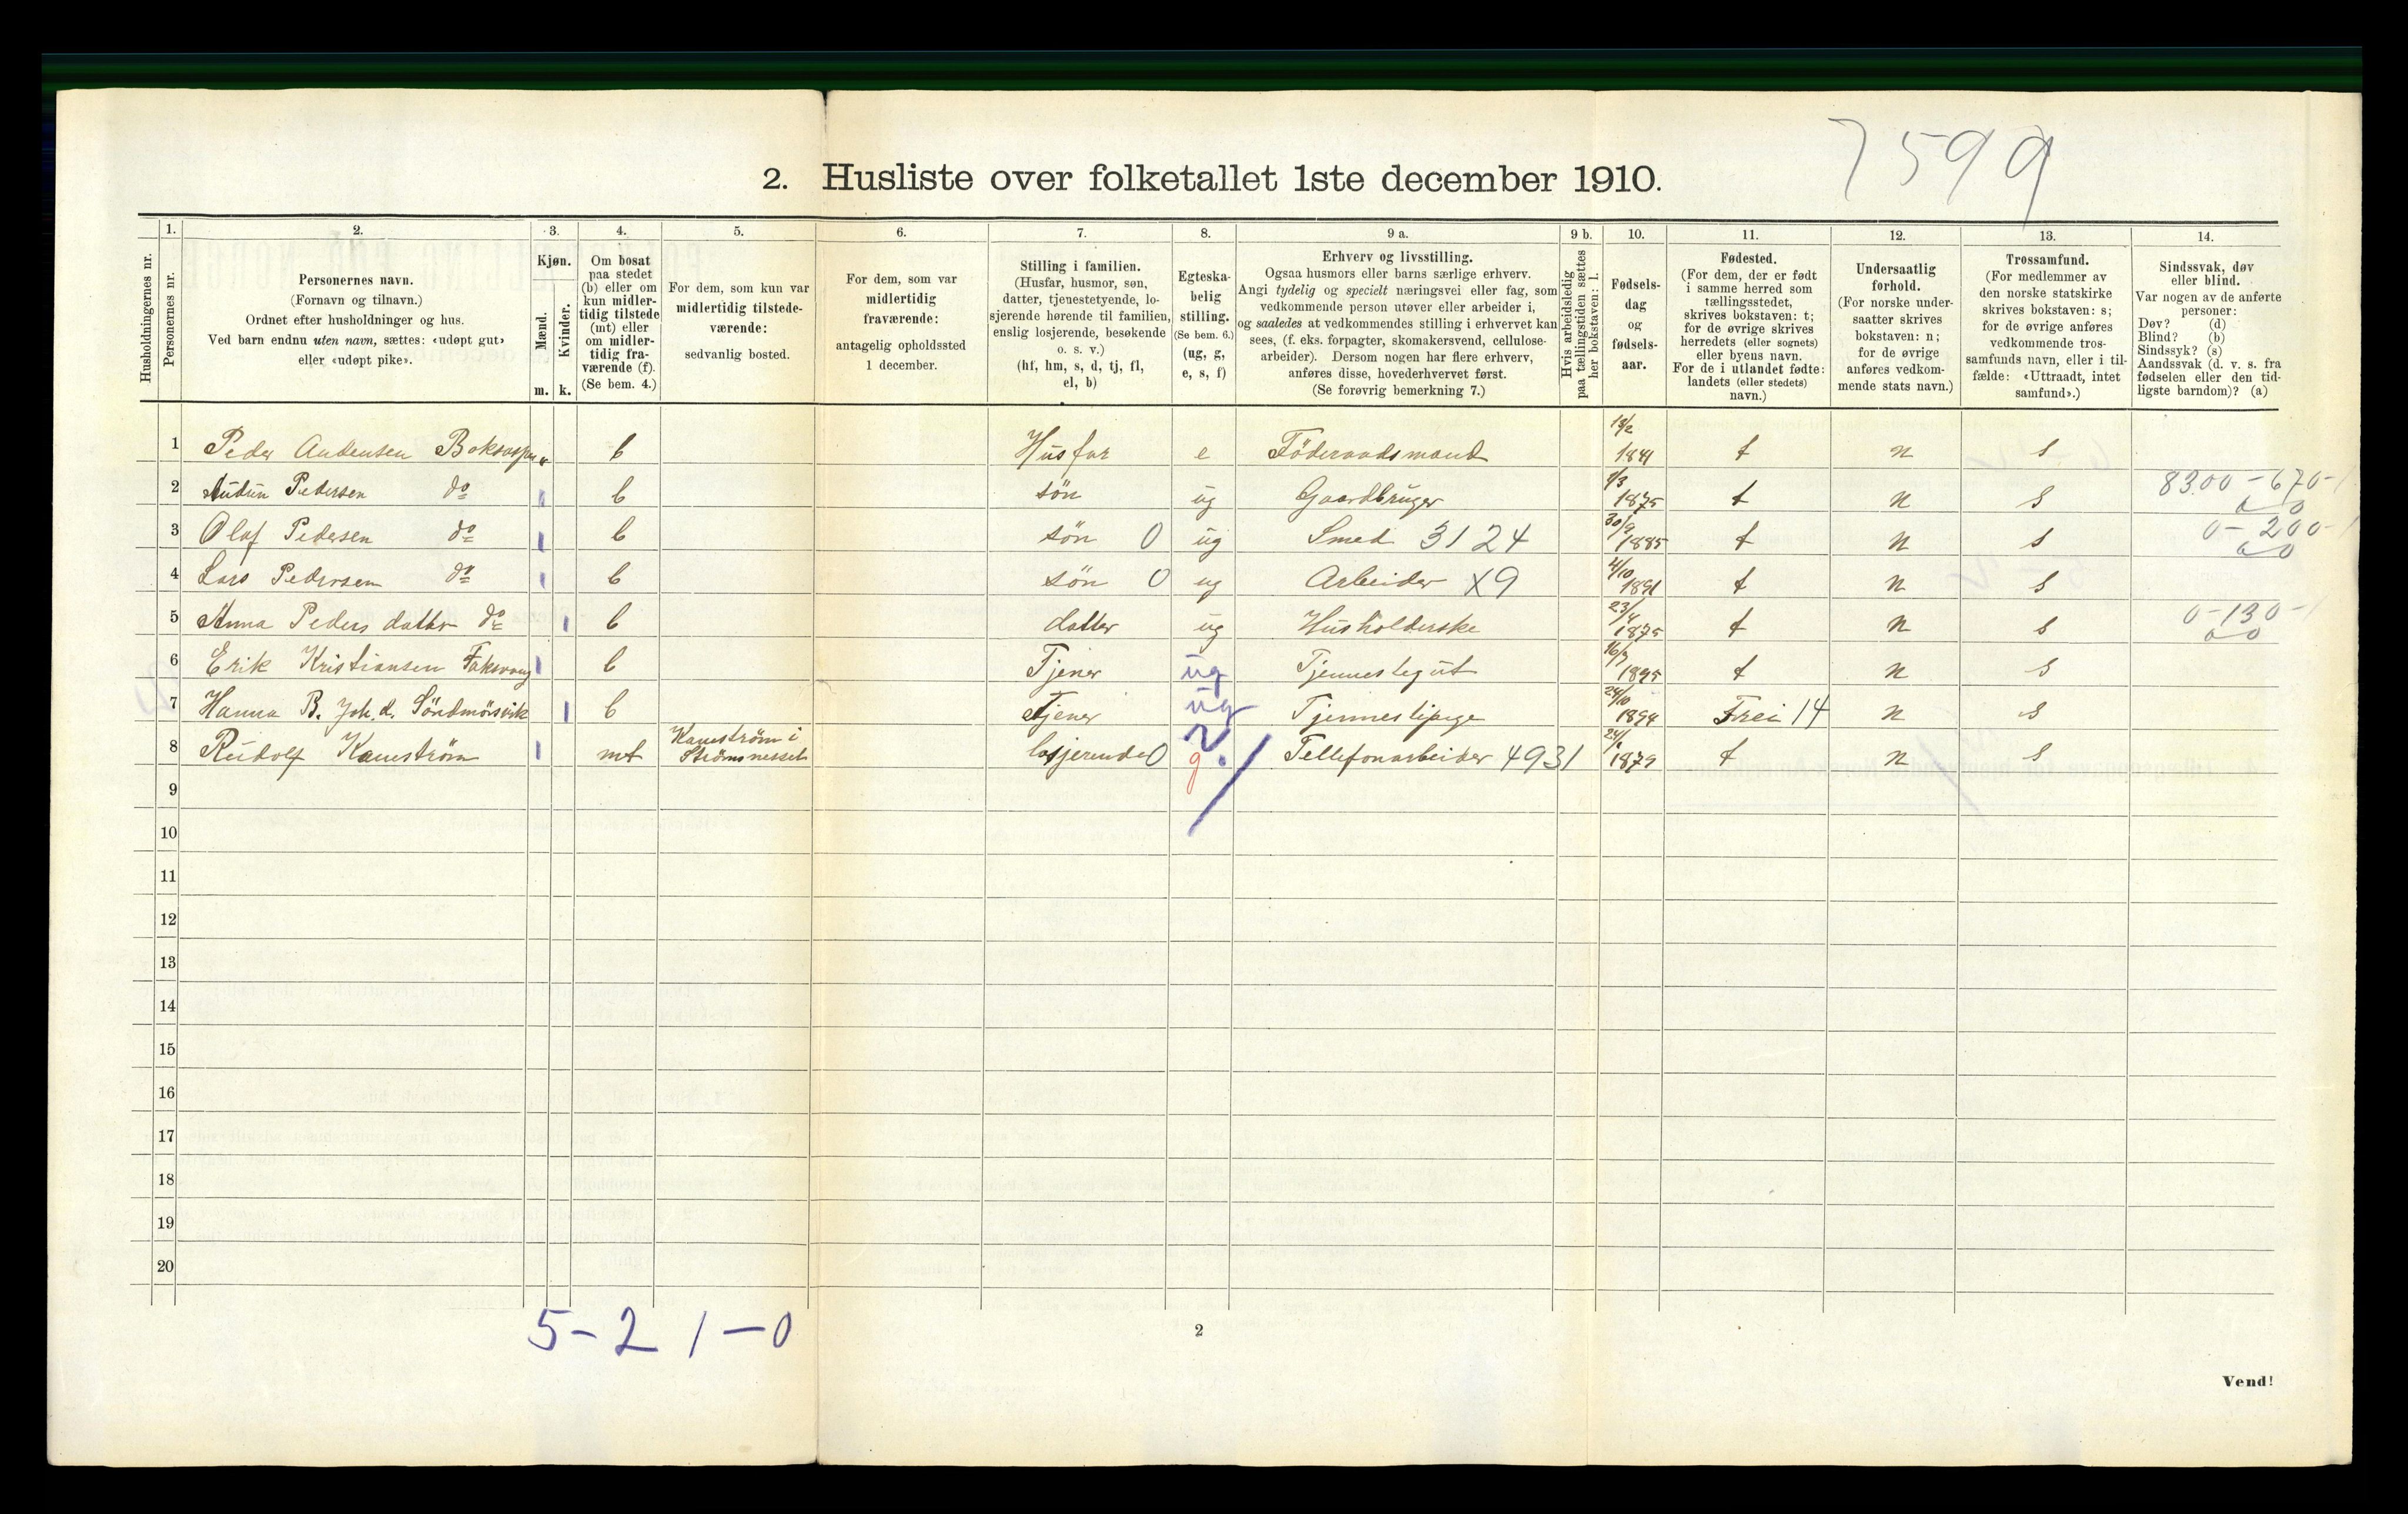 7599
2. Husliste over folketallet 1ste december 1910.
Husholdningernes nr.
1.
Personernes nr.
2.
Personernes navn.
(Fornavn og tilnavn.)
Ordnet efter husholdninger og hus.
Ved barn endnu uten navn, sættes: «udøpt gut»
eller «udøpt pike».
3.
Kjøn.
Mænd.
m.
Kvinder.
k.
4.
Om bosat
paa stedet
(b) eller om
kun midler-
tidig tilstede
(mt) eller
om midler-
tidig fra-
værende (f).
(Se bem. 4.)
5.
For dem, som kun var
midlertidig tilstede-
værende:
sedvanlig bosted.
6.
For dem, som var
midlertidig
fraværende:
antagelig opholdssted
1 december.
7.
Stilling i familien.
(Husfar, husmor, søn,
datter, tjenestetyende, lo-
sjerende hørende til familien,
enslig losjerende, besøkende
o. s. v.)
(hf, hm, s, d, tj, fl,
el, b)
8.
Egteska-
belig
stilling.
(Se bem. 6.)
(ug, g,
e, s, f)
9 a.
Erhverv og livsstilling.
Ogsaa husmors eller barns særlige erhverv.
Angi tydelig og specielt næringsvei eller fag, som
vedkommende person utøver eller arbeider i,
og saaledes at vedkommendes stilling i erhvervet kan
sees, (f. eks. forpagter, skomakersvend, cellulose-
arbeider). Dersom nogen har flere erhverv,
anføres disse, hovederhvervet først.
(Se forøvrig bemerkning 7.)
9 b.
Hvis arbeidsledig
paa tællingstiden sættes
her bokstaven: l.
10.
Fødsels-
dag
og
fødsels-
aar.
11.
Fødested.
(For dem, der er født
i samme herred som
tællingsstedet,
skrives bokstaven: t;
for de øvrige skrives
herredets (eller sognets)
eller byens navn.
For de i utlandet fødte:
landets (eller stedets)
navn.)
12.
Undersaatlig
forhold.
(For norske under-
saatter skrives
bokstaven: n;
for de øvrige
anføres vedkom-
mende stats navn.)
13.
Trossamfund.
(For medlemmer av
den norske statskirke
skrives bokstaven: s;
for de øvrige anføres
vedkommende tros-
samfunds navn, eller i til-
fælde: «Uttraadt, intet
samfund».)
14.
Sindssvak, døv
eller blind.
Var nogen av de anførte
personer:
Døv? (d)
Blind? (b)
Sindssyk? (s)
Aandssvak (d. v. s. fra
fødselen eller den tid-
ligste barndom)? (a)
1 Peder Audensen b Husfar e Föderaadsmand 1841 t n s
2 Audun Pedersen do b sön ug Gaardbruger 1/3 1875 t n s 8300-670-
3 Olaf Pedersen do b sön 0 ug Smed 3124 30/9 1885 t n s 0-200-
4 Lars Pedersen do b sön 0 ug Arbeider X9 4/10 1891 t n s
5 Anna Peders datter do b datter ug Husholderske 23/4 1875 t n s 0-130-
6 Erik Kristiansen b Tjener ug Tjennestegut 16/7 1895 t n s
7 Hanna B. Joh. d. Söndmörsvik b Tjener ug 24/10 1894 Frei 14 n s
8 Rudolf Kaneström mt Kaneström i Strömsnesset losjerende 0 g ? Tellefonarbeider 4931 24/1 1879 t n s
9
10
11
12
13
14
15
16
17
18
19
20
5-2 1-0
2
Vend!